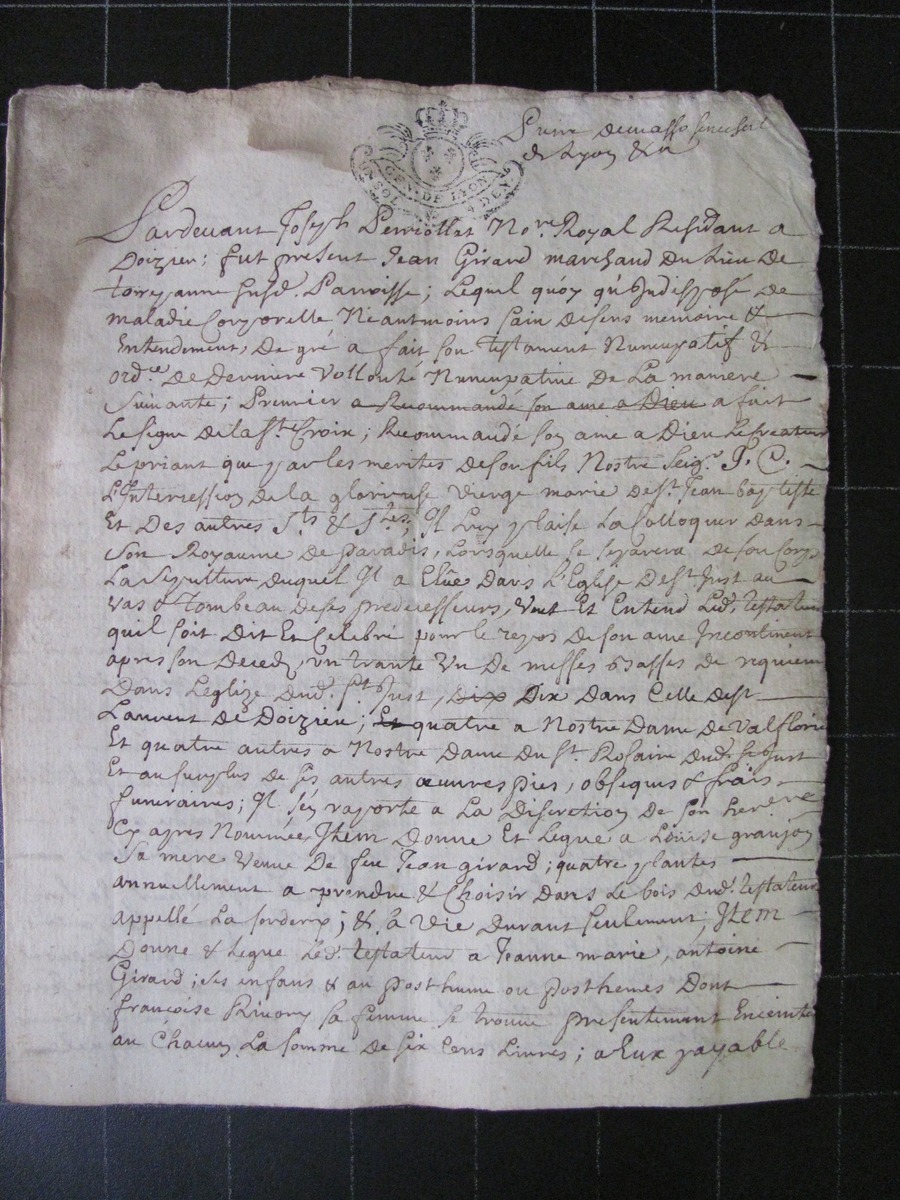 GEN. DE LYON
UN SOL 4 DEN.
de Lyon &a
Pardevant Joseph Perriollat No.re Royal Residant a
Doizieu; fut present Jean Girard marchand du Lieu de
torrepanne susd. Parroisse; Lequel quoy qu'Indisposé de
maladie Corporelle, Neantmoins sain de sens memoire &
Entendement, De gré a fait son testament Nuncupatif &
ord.ce de Derniere Vollonté Nuncupative De La maniere
Suivante; Premier a Recommandé son ame a Dieu a fait
Le signe de la s.te Croix; Recommandé son ame a Dieu Le createur
Le priant que par les merites de son fils Nostre Seig.r J. C.
L'Intercession de la glorieuse vierge marie de s.t Jean baptiste
Et Des autres S.ts & S.tes, Il Luy plaise La Colloquer dans
Son Royaume de paradis, Lorsquelle se separera de son Corps
La sepulture duquel Il a Elüe dans L'Eglise de s.t Just au
vas & tombeau de ses predecesseurs, Veut Et Entend Led. testateur
quil soit Dit Et Celebré pour le repos de son ame Incontinent
apres son Decedz, un trante Un De messes basses de requiem
Dans Leglize dud. s.t Just, dix Dix dans Celle de s.t
Laurent de Doizieu; Et quatre a Nostre Dame de Valflorie
Et quatre autres a Nostre dame du s.t Rosaire dud. s.t Just
Et au surplus de ses autres œuvres pies, obseques & frais
funeraires; Il s'en raporte a La Discretion de son her.ere
Cy apres Nommée, Item donne Et Legue a Louise granjon
Sa mere veuve De feu Jean girard; quatre plantes
annuellement a prendre & Choisir dans Le bois dud. testateur
appellé La; & sa vie durant seulement; Item
Donne & Legue Led. testateur a Jeanne marie, antoine
Girard; ses enfans & au posthume ou posthemes Dont
françoise Rivory sa femme se trouve presentement Enceinte
au Chacun La somme de six Cens Livres; a Eux payable